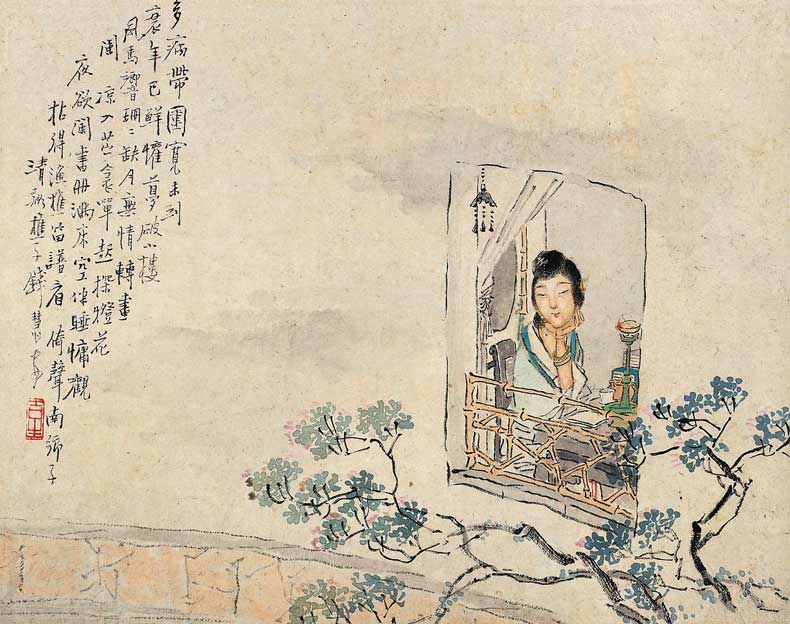 多病帶圍寬未到
衰年已鮮懽夢破小樓
風馬響珊〻缺月無情轉畫
闌涼入苧衾單起探燈花
夜欲闌書冊滿床空伴睡慵觀
拈得漁樵笛譜看倚聲南鄉子
清谿樵子錢慧安
吉生